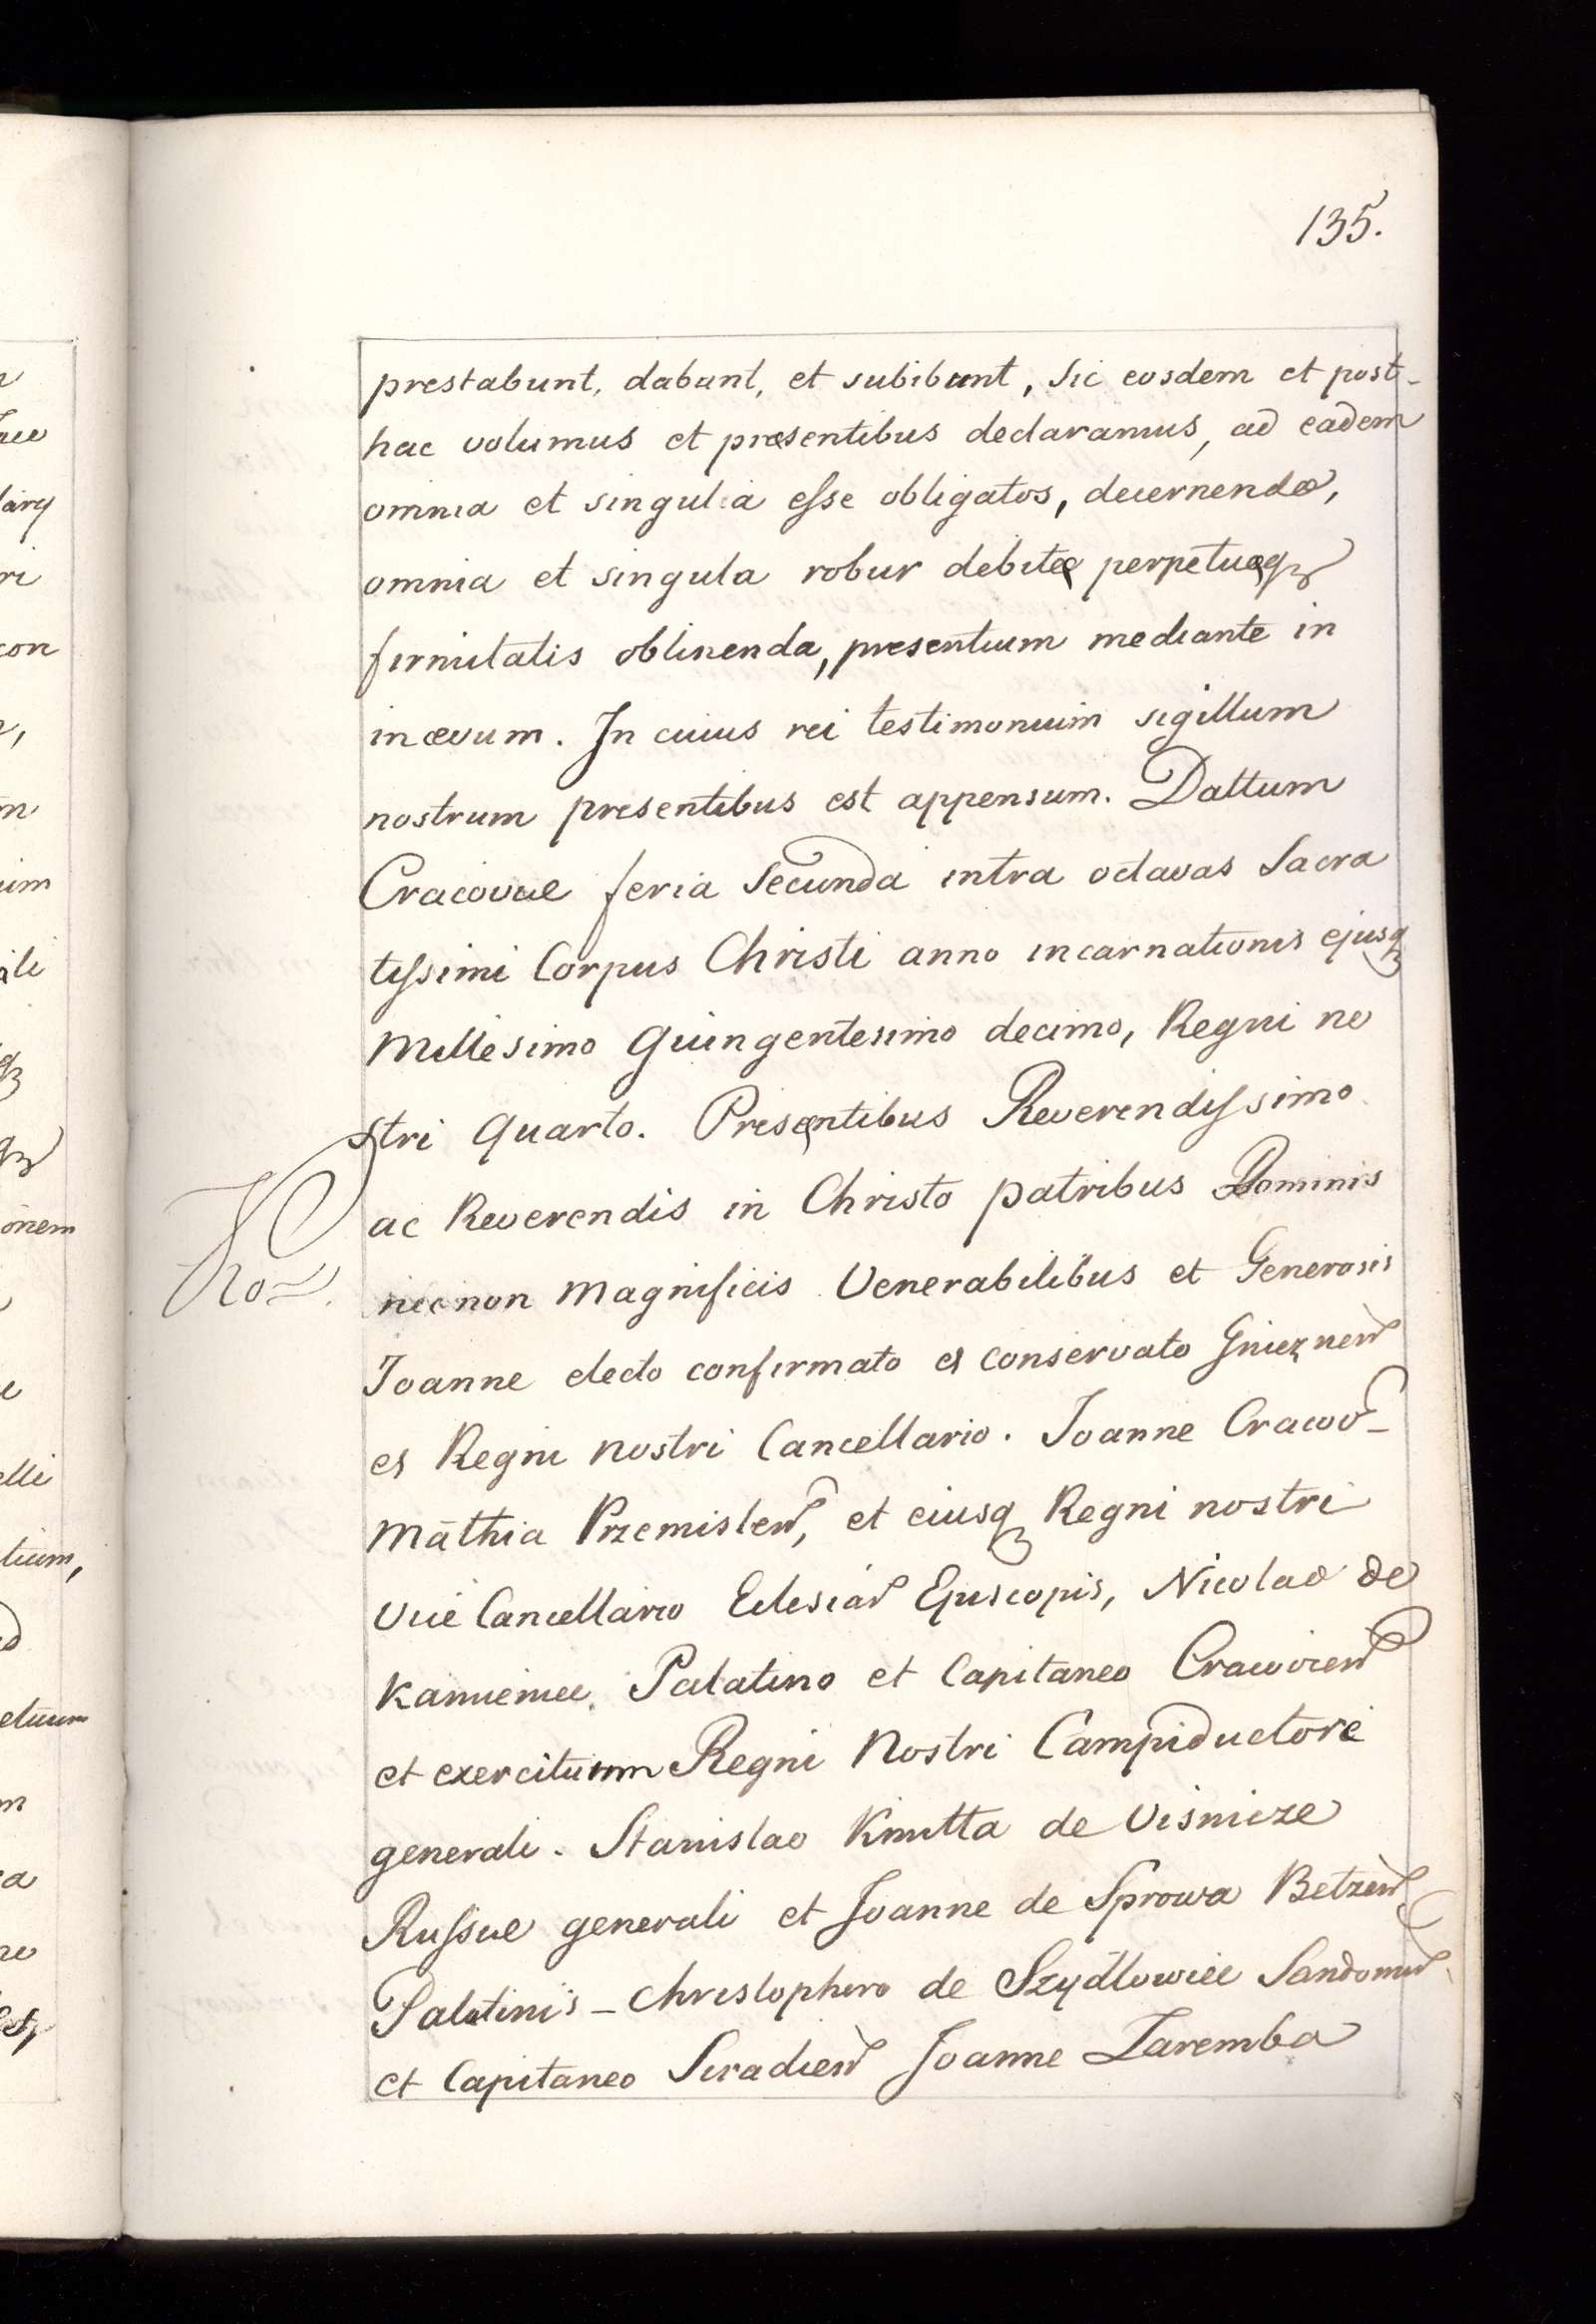 135.
prestabunt, dabunt, et subibunt, sic eosdem et post-
hac volumus et presentibus declaramus, ad eadem
omnia et singulia esse obligatos, decernendo,
omnia et singula robur debitæ perpetuæqꝫ
firmitatis oblinenda, presentium mediante in
in ævum. In cuius rei testimonium sigillum
nostrum presentibus est appensum. Dattum
Cracoviæ feria Secunda intra octavas Sacra
tissimi Corpus Christi anno incarnationis ejusqꝫ
Millesimo Quingentesimo decimo, Regni no
stri Quarto. Presentibus Reverendissimo
ac Reverendis in Christo patribus Dominis
necnon Magnificis Venerabilibus et Generosis
Joanne electo confirmato et conservato Gnieznen̄
et Regni nostri Cancellario. Joanne Cracov̄-
Mathia Przemislen̄, et eiusqꝫ Regni nostri
Vice Cancellario Eclesiar̄ Episcopis, Nicolao de
Kamieniec. Palatino et Capitaneo Cracovien̄
et exercituum Regni Nostri Campiductore
generali. Stanislao Kmitta de Visnicze
Russiæ generali et Joanne de Sprowa Betzen̄
Palatinis - Christophero de Szydlowiec Sandomir̄
et Capitaneo Siradien̄ Joanne Zaremba